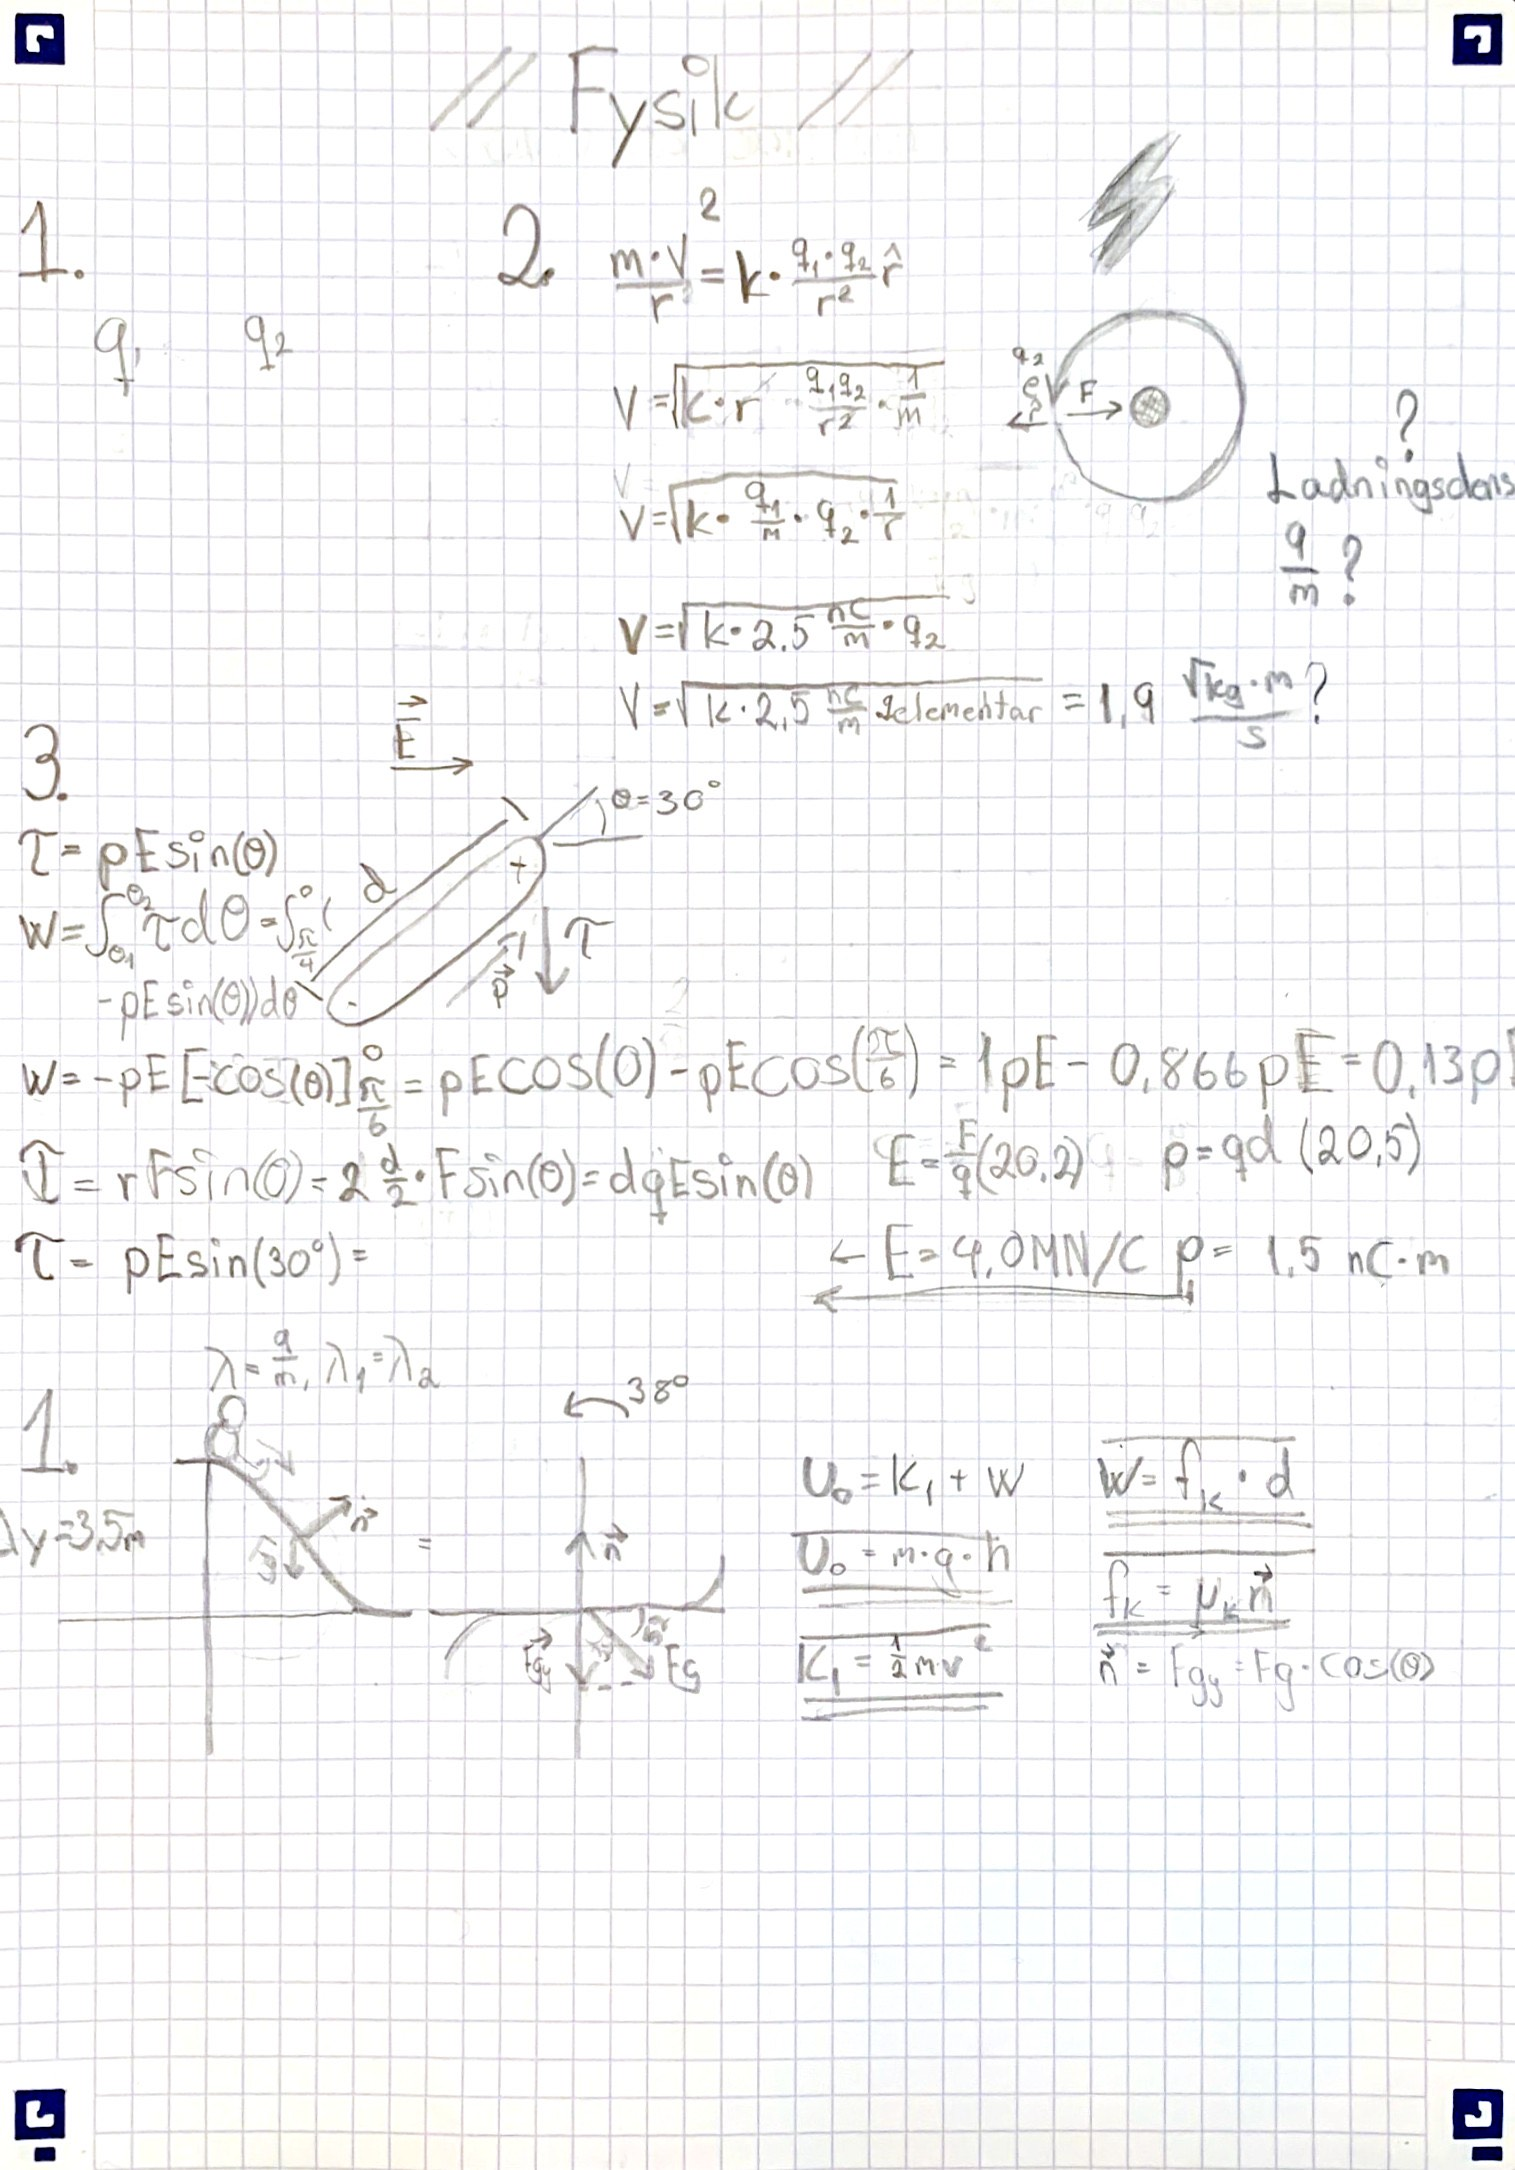 // Fysik //
1.
q₁ q₂
2. m·V²/r = k·q₁·q₂/r² r̂
V=√(k·r·q₁q₂/r²·1/m)
V=
V=√(k·q₁/m·q₂·1/r)
V=√(k·2.5 nC/m·q₂)
V=√(k·2,5 nC/m qelementar) = 1,9 √kg·m/s ?
q₂
F
?
Ladningsdens
q/m ?
3.
E⃗
θ=30°
d
+
-
p⃗
τ
τ= pEsin(θ)
W=∫θ₁^θ₂ τdθ=∫π/4^0(
-pEsin(θ))dθ
W=-pE[-cos(θ)]π/6^0 = pEcos(0)-pEcos(π/6) = 1pE- 0,866pE=0,13p
τ= rFsin(θ)=2 d/2·Fsin(θ)=dqEsin(θ) E=F/q(20,2) p=qd (20,5)
τ= pEsin(30°)= ← E=4,0MN/C p= 1,5 nC·m
λ=q/m, λ₁=λ₂
1.
y=3,5m
n⃗
=
38°
n⃗
F⃗gy
Fg
U₀=K₁+W
U₀=m·g·h
K₁=½m·v²
W=fₖ·d
fₖ=μₖn⃗
n⃗=Fgy=Fg·cos(θ)